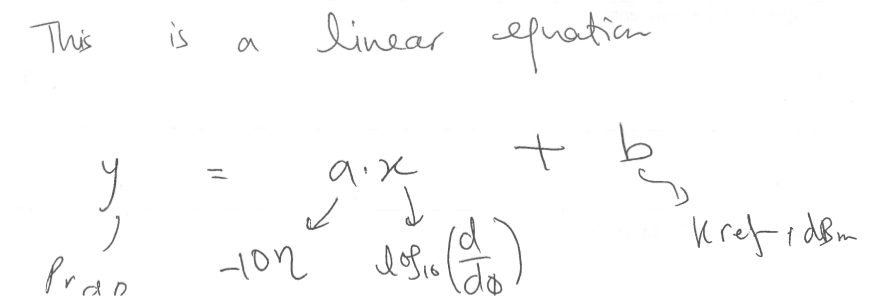 This is a linear equation
y = a.x + b
-10η log₁₀(d/d0) Kref, dBm